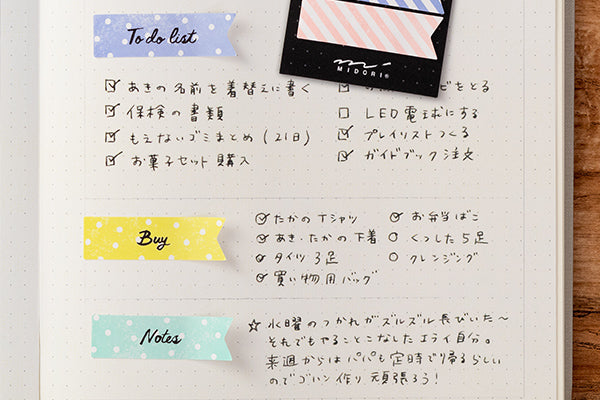 To do list
MIDORI®
あきの名前を着替えに書く
ビをとる
保険の書類
LED電球にする
もえないゴミまとめ(21日)
プレイリストつくる
お菓子セット購入
ガイドブック注文
Buy
たかのTシャツ
お弁当ばこ
あき・たかの下着
くつした5足
タイツ3足
クレンジング
買い物用バッグ
Notes
☆ 水曜のつかれがズルズル長びいた〜
それでもやることこなしたエライ自分。
来週からはパパも定時で帰るらしい
のでゴハン作り頑張ろう!